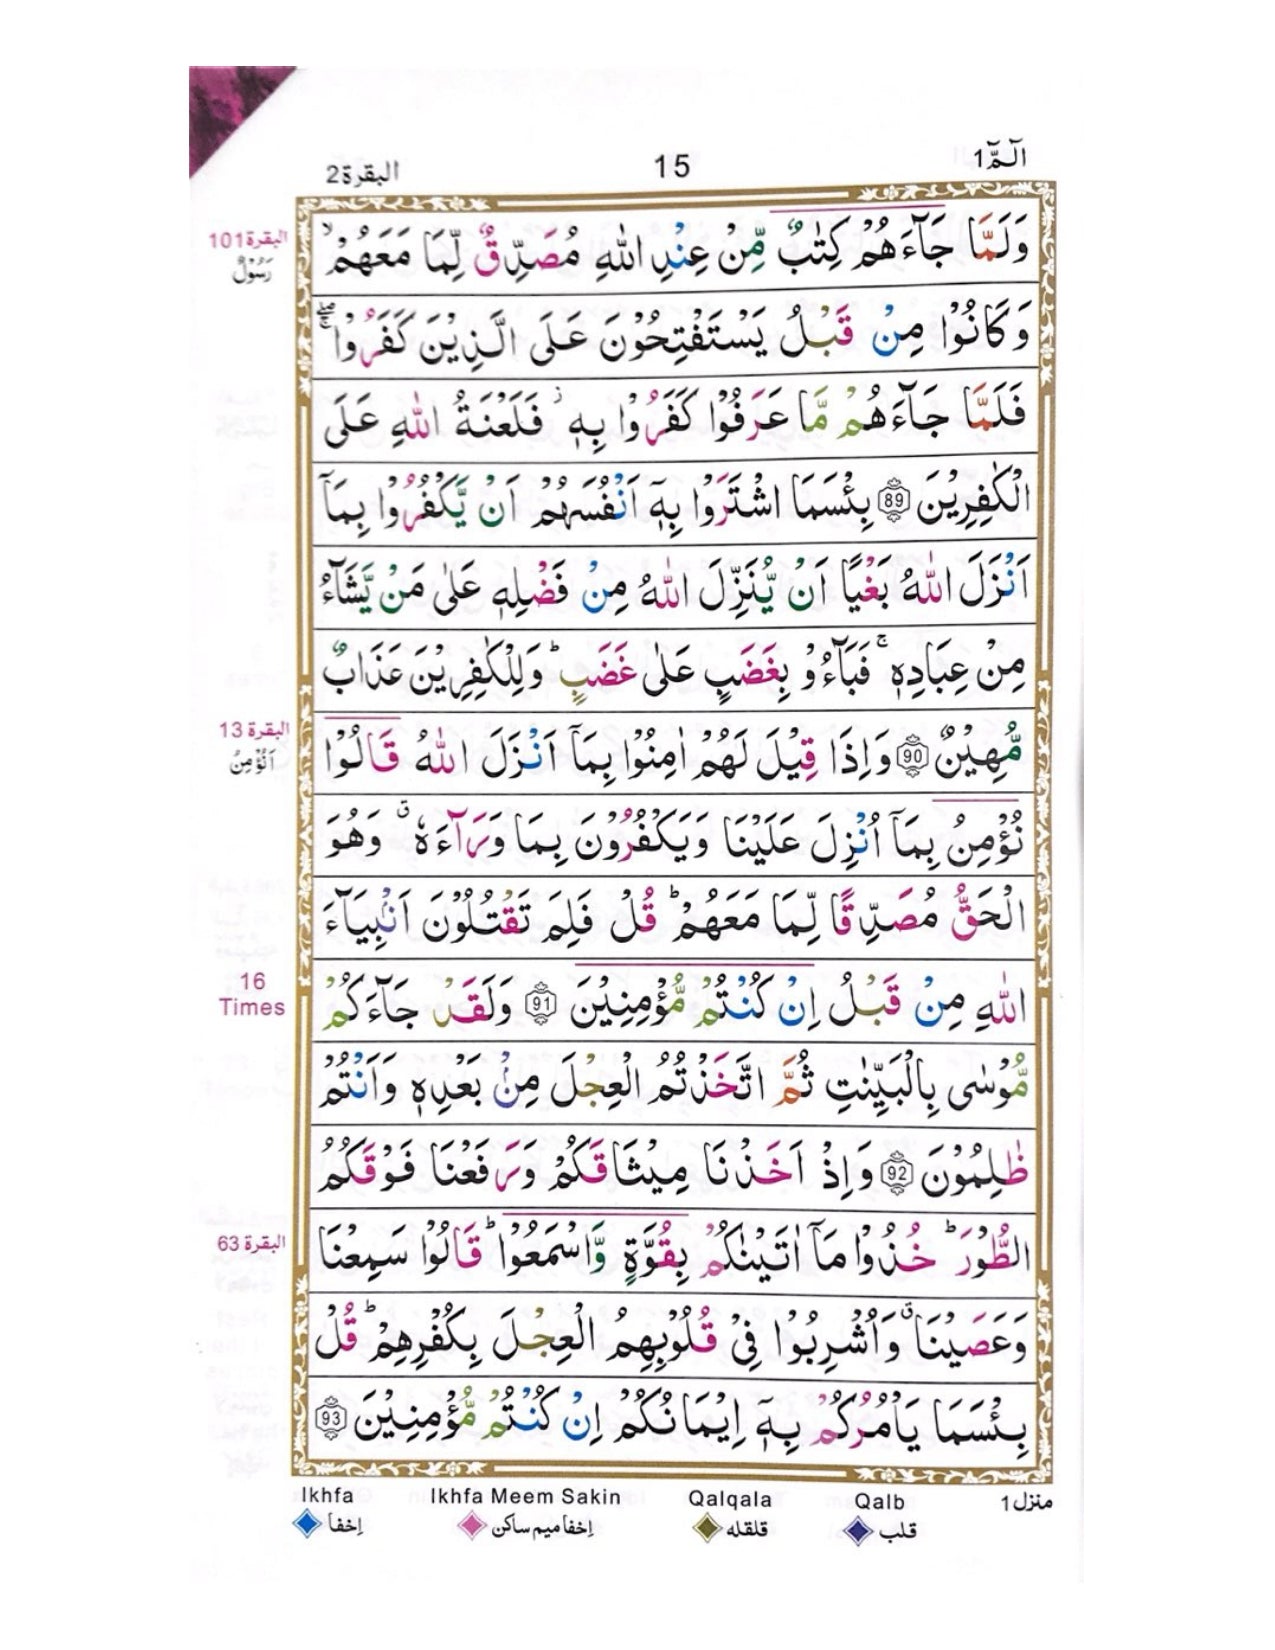 البقرة2 15 الٓمّٓ1
وَلَمَّا جَآءَهُمْ كِتٰبٌ مِّنْ عِنْدِ اللّٰهِ مُصَدِّقٌ لِّمَا مَعَهُمْ ۙ
وَكَانُوْا مِنْ قَبْلُ يَسْتَفْتِحُوْنَ عَلَى الَّذِيْنَ كَفَرُوْا ۚۖ
فَلَمَّا جَآءَهُمْ مَّا عَرَفُوْا كَفَرُوْا بِهٖ ۫ فَلَعْنَةُ اللّٰهِ عَلَى
الْكٰفِرِيْنَ 89 بِئْسَمَا اشْتَرَوْا بِهٖٓ اَنْفُسَهُمْ اَنْ يَّكْفُرُوْا بِمَآ
اَنْزَلَ اللّٰهُ بَغْيًا اَنْ يُّنَزِّلَ اللّٰهُ مِنْ فَضْلِهٖ عَلٰى مَنْ يَّشَآءُ
مِنْ عِبَادِهٖ ۚ فَبَآءُوْ بِغَضَبٍ عَلٰى غَضَبٍ ؕ وَلِلْكٰفِرِيْنَ عَذَابٌ
مُّهِيْنٌ 90 وَاِذَا قِيْلَ لَهُمْ اٰمِنُوْا بِمَآ اَنْزَلَ اللّٰهُ قَالُوْا
نُؤْمِنُ بِمَآ اُنْزِلَ عَلَيْنَا وَيَكْفُرُوْنَ بِمَا وَرَآءَهٗ ۗ وَهُوَ
الْحَقُّ مُصَدِّقًا لِّمَا مَعَهُمْ ؕ قُلْ فَلِمَ تَقْتُلُوْنَ اَنْۢبِيَآءَ
اللّٰهِ مِنْ قَبْلُ اِنْ كُنْتُمْ مُّؤْمِنِيْنَ 91 وَلَقَدْ جَآءَكُمْ
مُّوْسٰى بِالْبَيِّنٰتِ ثُمَّ اتَّخَذْتُمُ الْعِجْلَ مِنْۢ بَعْدِهٖ وَاَنْتُمْ
ظٰلِمُوْنَ 92 وَاِذْ اَخَذْنَا مِيْثَاقَكُمْ وَرَفَعْنَا فَوْقَكُمُ
الطُّوْرَ ؕ خُذُوْا مَآ اٰتَيْنٰكُمْ بِقُوَّةٍ وَّاسْمَعُوْا ؕ قَالُوْا سَمِعْنَا
وَعَصَيْنَا ۗ وَاُشْرِبُوْا فِيْ قُلُوْبِهِمُ الْعِجْلَ بِكُفْرِهِمْ ؕ قُلْ
بِئْسَمَا يَاْمُرُكُمْ بِهٖٓ اِيْمَانُكُمْ اِنْ كُنْتُمْ مُّؤْمِنِيْنَ 93
البقرة 101
رَسُوْلٌ
البقرة 13
اَنُؤْمِنُ
16
Times
البقرة 63
Ikhfa Ikhfa Meem Sakin Qalqala Qalb منزل 1
إخفا إخفا ميم ساكن قلقله قلب